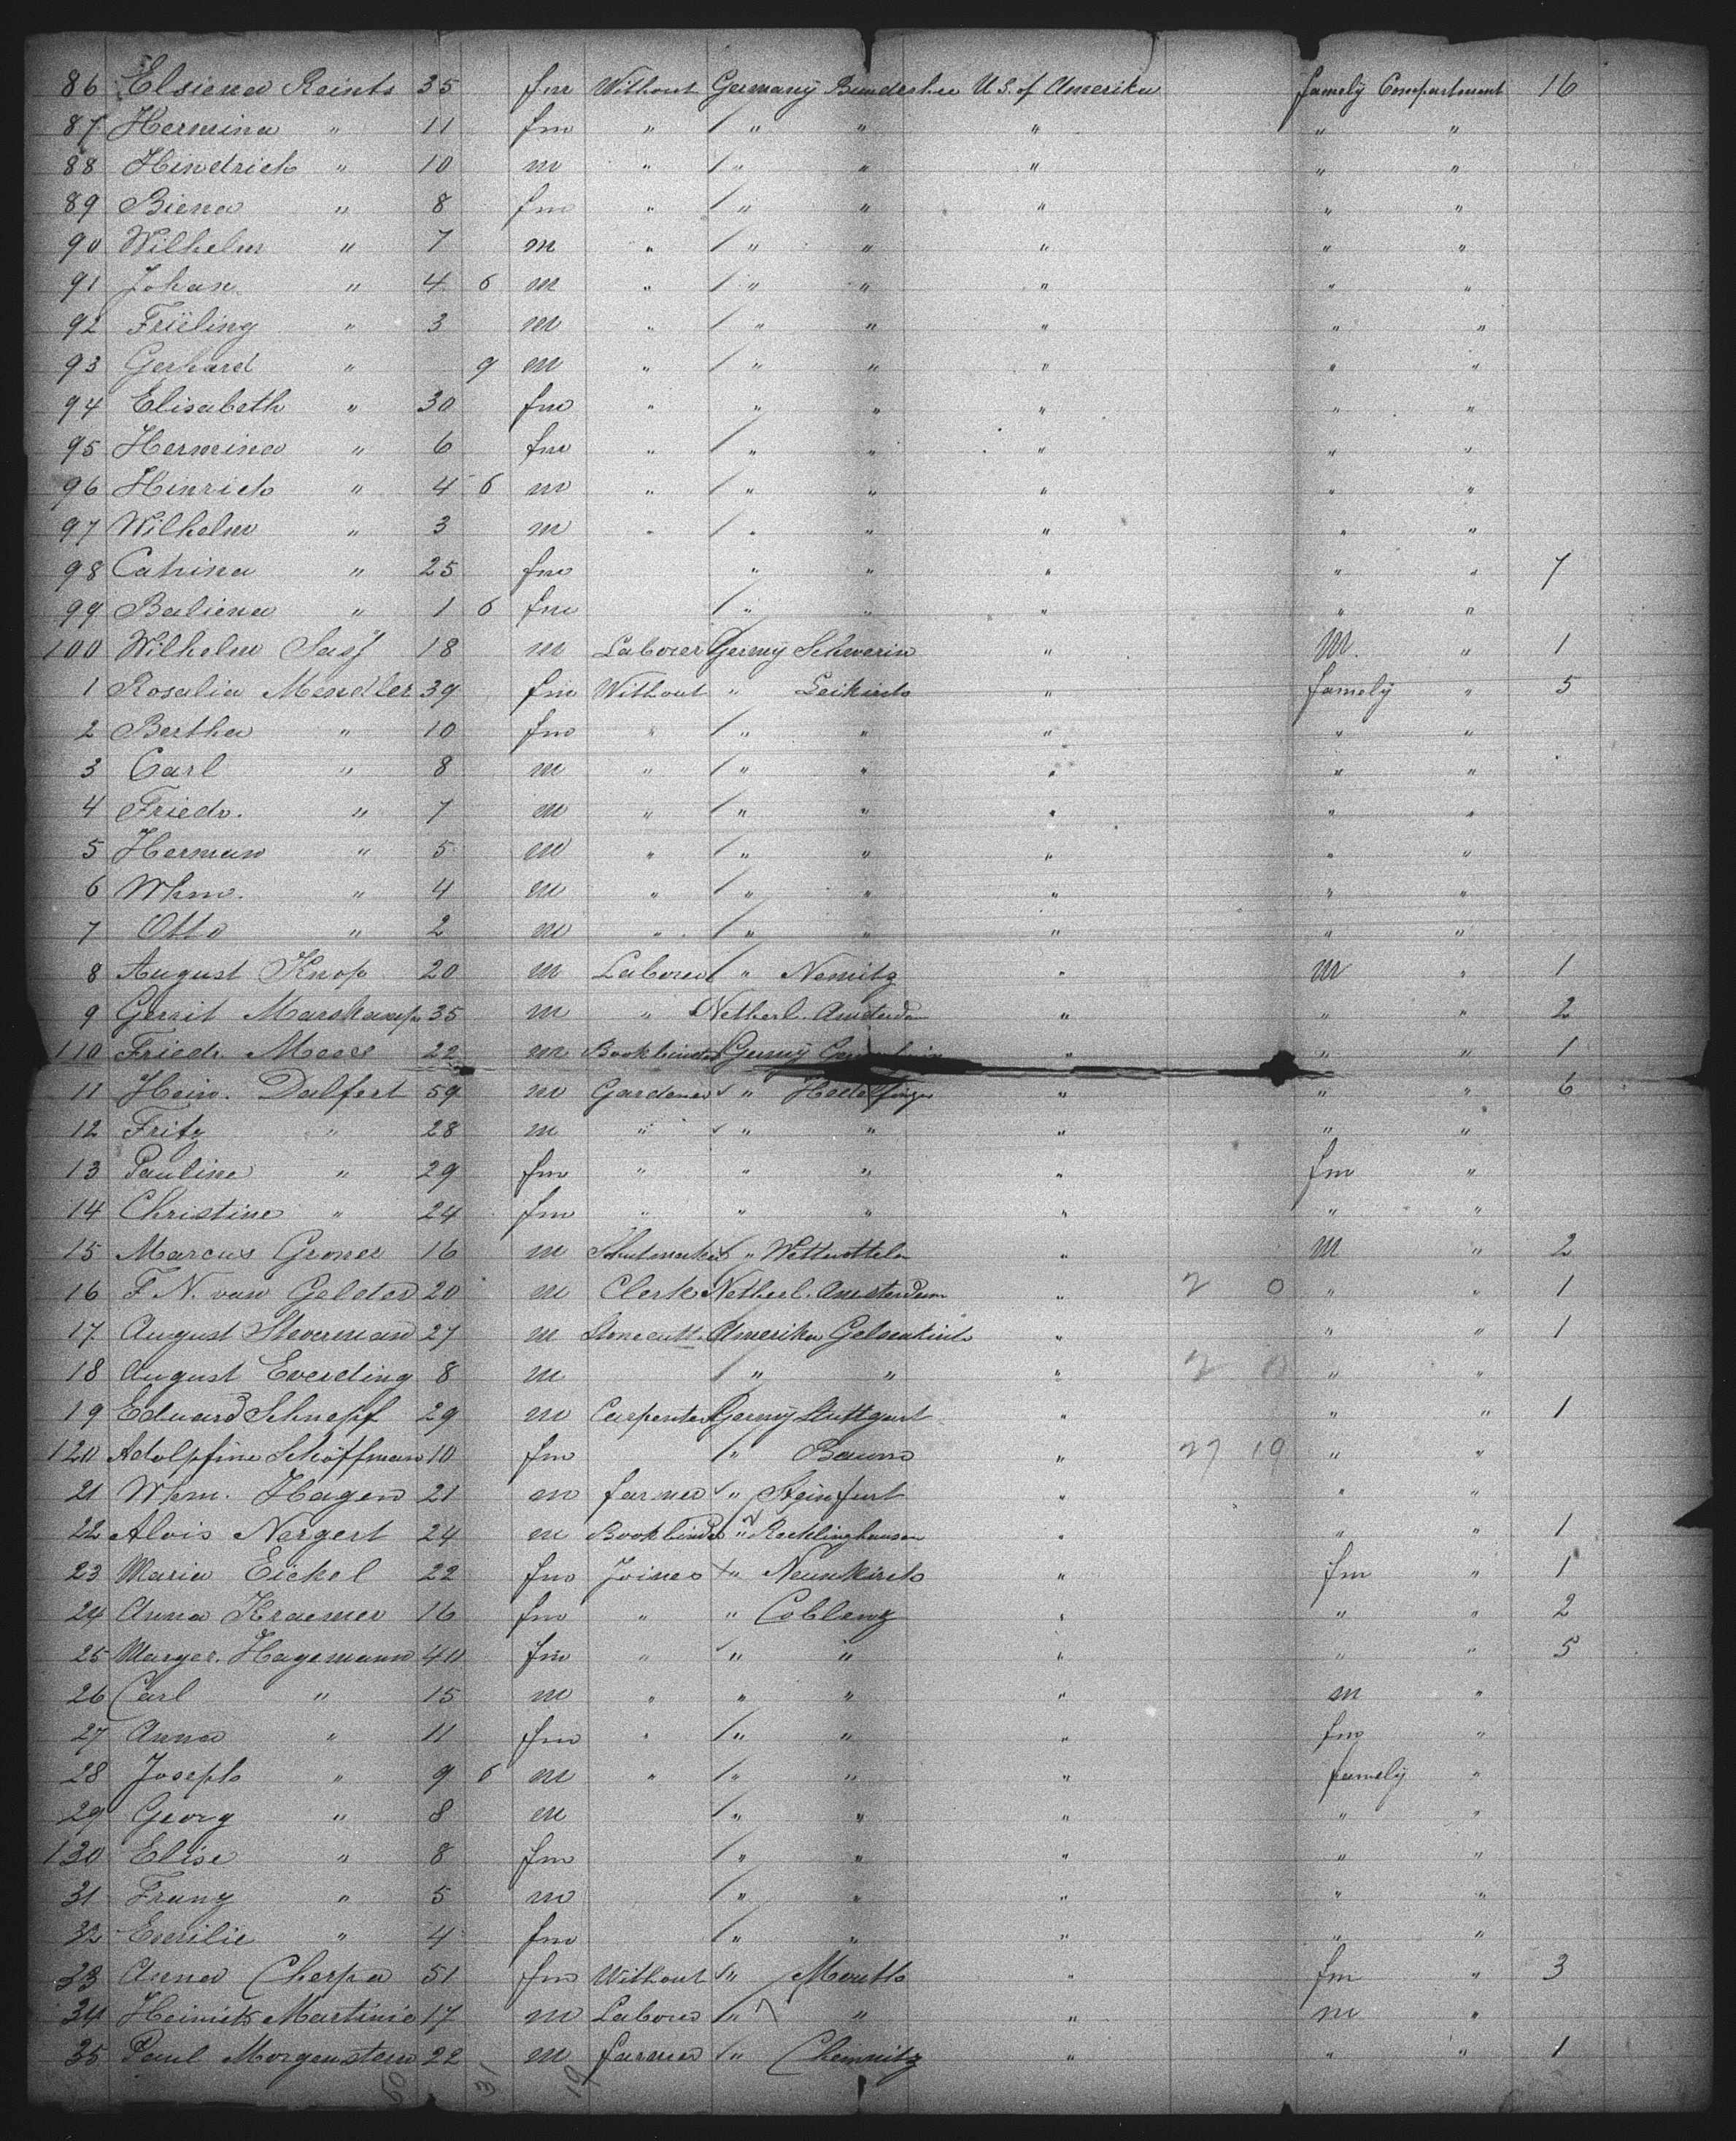 86 Elsiena Reints 35 fm Without Germany Bunderhee U.S. of Amerika famely Compartment 16
87 Hermina " 11 fm " " " " " "
88 Hindrich " 10 m " " " " " "
89 Biena " 8 fm " " " " " "
90 Wilhelm " 7 m " " " " " "
91 Johan " 4 6 m " " " " " "
92 Frieling " 3 m " " " " " "
93 Gerhard " 9 m " " " " " "
94 Elisabeth " 30 fm " " " " " "
95 Hermina " 6 fm " " " " " "
96 Hinrich " 4 6 m " " " " " "
97 Wilhelm " 3 m " " " " " "
98 Catrina " 25 fm " " " " " 7
99 Baliena " 1 6 fm " " " " "
100 Wilhelm Sass 18 m Laborer Germy Schwerin " M. " 1
1 Rosalia Mendler 39 fm Without " Leikirch " famely " 5
2 Bertha " 10 fm " " " " " "
3 Carl " 8 m " " " " " "
4 Friedr. " 7 m " " " " " "
5 Herman " 5 m " " " " " "
6 Whm. " 4 m " " " " " "
7 Otto " 2 m " " " " " "
8 August Knop 20 m Laborer " Nemitz " m " 1
9 Gerrit Marskamp 35 m " Netherl. Amsterdam " " " 2
110 Friedr. Mees 22 m Bookbinder Germy " " " 1
11 Heinr. Dalfert 59 m Gardener " Hedelfingen " " " 6
12 Fritz " 28 m " " " " " "
13 Pauline " 29 fm " " " " fm "
14 Christine " 24 fm " " " " " "
15 Marcus Groner 16 m " " m " 2
16 F. N. van Gelder 20 m Clerk Netherl. Amsterdam " 2 0 " " 1
17 August Steverman 27 m Stonecutt. Amerika Gelsenkirch " " " 1
18 August Everding 8 m " " " " "
19 Eduard Schnepf 29 m Carpenter Germy Stuttgart " " " 1
120 Adolpfine Schöffman 10 fm " " 27 19 " "
21 Whm. Hagen 21 m farmer " Steinfurt " " "
22 Alois Nergert 24 m Bookbinder " Recklinghausen " " " 1
23 Maria Eickel 22 fm Joiner " Neunkirch " fm " 1
24 Anna Kraemer 16 fm " " Coblenz " " " 2
25 Marger. Hagemann 40 fm " " " " " " 5
26 Carl " 15 m " " " " m "
27 Anna " 11 fm " " " " fm "
28 Joseph " 9 6 m " " " " famely "
29 Georg " 8 m " " " " "
130 Elise " 8 fm " " " " "
31 Franz " 5 m " " " " "
32 Emilie " 4 fm " " " " "
33 Anna Cherpa 51 fm Without " " fm " 3
34 Heinrich Martinie 17 m Laborer " " " m "
35 Paul Morgenstern 22 m farmer " Chemnitz " " " 1
50 31 19